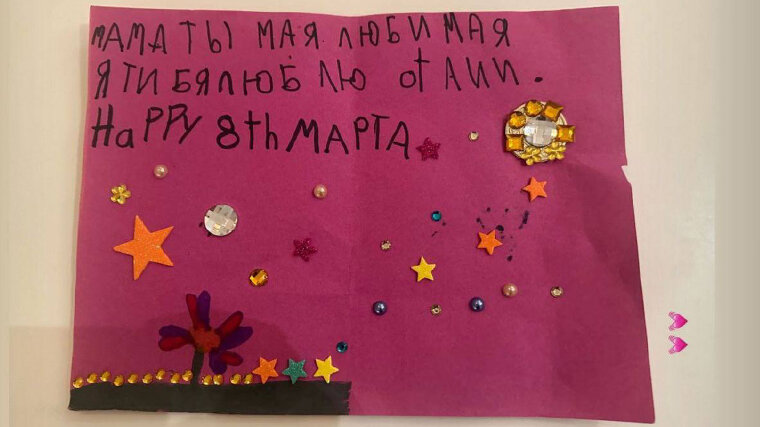 МАМА ТЫ МАЯ ЛЮБИМАЯ
Я ТИБЯ ЛЮБЛЮ от АИИ.
HaPPY 8th МАРТА